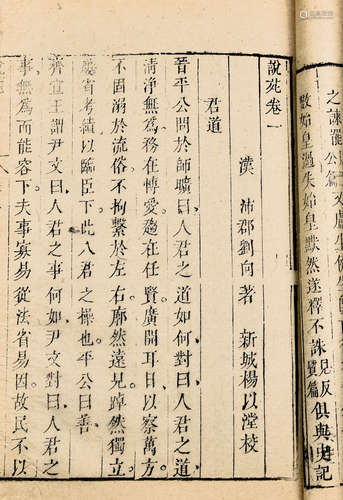 之諫罷
公篇
數始皇過失始皇默然遂釋不誅見反
質篇
俱與史記
說苑卷一
漢 沛郡劉向著 新城楊以漟校
君道
晉平公問於師曠曰人君之道如何對曰人君之道
清淨無為務在博愛趨在任賢廣開耳目以察萬方
不固溺於流俗不拘繫於左右廓然遠見踔然獨立
屢省考績以臨臣下此人君之操也平公曰善
齊宣王謂尹文曰人君之事何如尹文對曰人君之
事無為而能容下夫事寡易從法省易因故民不以